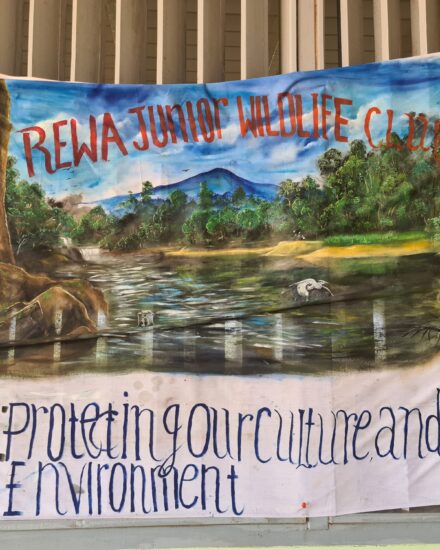 REWA JUNIOR WILDLIFE CLUB
:Protecting our culture, and
Environment